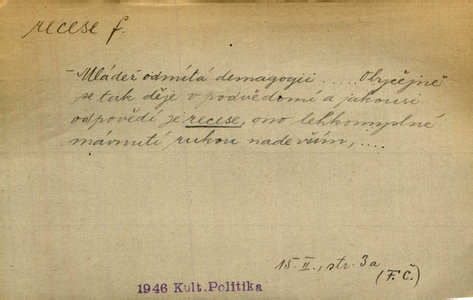 recese f.
– Mládež odmítá demagogii ..... Obyčejně
se tak děje v podvědomí a jakousi
odpovědí je recese, ono lehkomyslné
mávnutí rukou nade vším, ....
15. II., str. 3a
(F.Č.)
1946 Kult.Politika